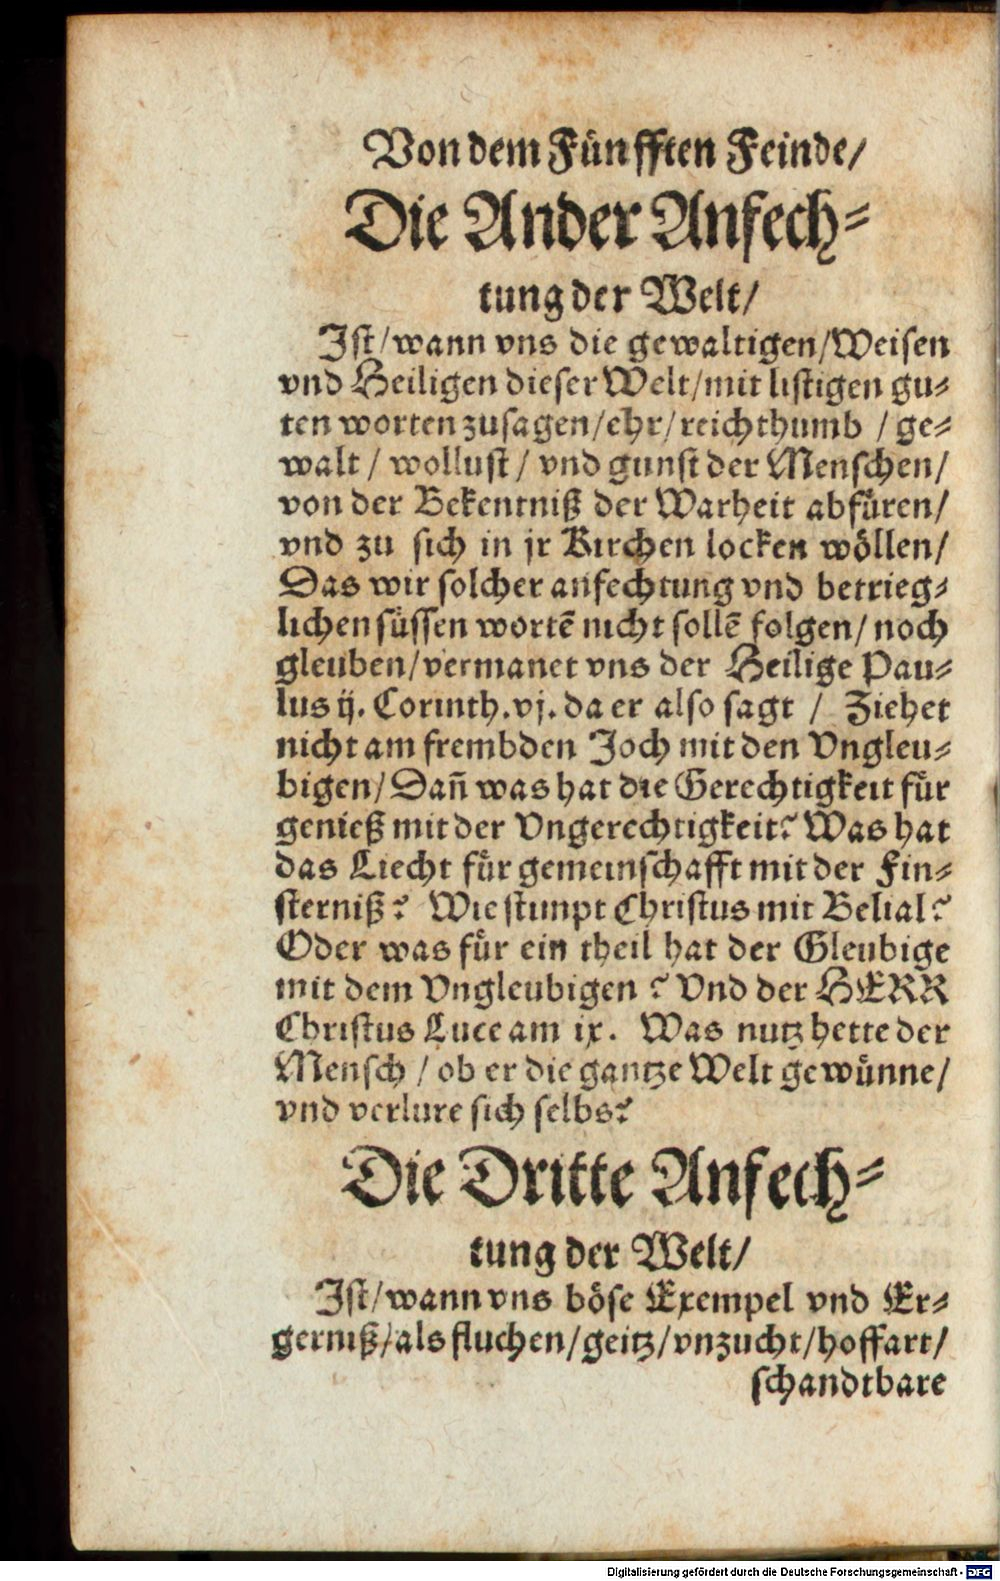 Von dem Fünfften Feinde/
Die Ander Anfech⸗
tung der Welt/
Ist/wann vns die gewaltigen/Weisen
vnd Heiligen dieser Welt/mit listigen gu⸗
ten worten zusagen/ehr/reichthumb / ge⸗
walt / wollust / vnd gunst der Menschen/
von der Bekentniß der Warheit abfüren/
vnd zu sich in jr Kirchen locken wöllen/
Das wir solcher anfechtung vnd betrieg⸗
lichen süssen wortē nicht sollē folgen/ noch
gleuben/vermanet vns der Heilige Pau⸗
lus ij. Corinth.vj. da er also sagt / Ziehet
nicht am frembden Joch mit den Vngleu⸗
bigen/Dañ was hat die Gerechtigkeit für
genieß mit der Vngerechtigkeit? Was hat
das Liecht für gemeinschafft mit der Fin⸗
sterniß? Wie stimpt Christus mit Belial?
Oder was für ein theil hat der Gleubige
mit dem Vngleubigen ? Vnd der HERR
Christus Luce am ix. Was nutz hette der
Mensch / ob er die gantze Welt gewünne/
vnd verlure sich selbs?
Die Dritte Anfech⸗
tung der Welt/
Ist/wann vns böse Exempel vnd Er⸗
gerniß/als fluchen/geitz/vnzucht/hoffart/
schandtbare
Digitalisierung gefördert durch die Deutsche Forschungsgemeinschaft - DFG